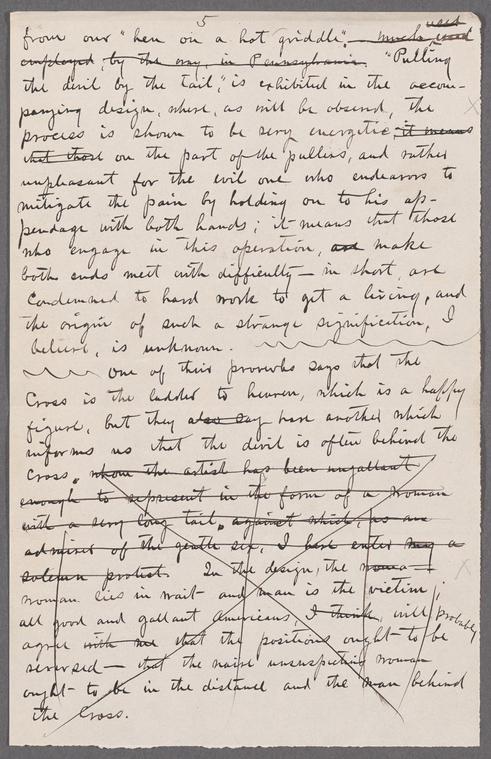 5
used
from our "hen on a hot griddle". — much used
employed, by the way, in Pennsylvania. "Pulling
the devil by the tail," is exhibited in the accom-
panying design, where, as will be observed, the
process is shown to be very energetic, it means
that those on the part of the pullers, and rather
unpleasant for the evil one who endeavors to
mitigate the pain by holding on to his ap-
pendage with both hands; it means that those
who engage in this operation, are make
both ends meet with difficulty — in short, are
condemned to hard work to get a living, and
the origin of such a strange signification, I
believe, is unknown.
One of their proverbs says that the
Cross is the ladder to heaven, which is a happy
figure, but they also say have another which
informs us that the devil is often behind the
Cross, whom the artist has been ungallant
enough to represent in the form of a woman
with a very long tail, against which, as an
admirer of the gentle sex, I here enter my a
solemn protest. In the design, the woma-
woman lies in wait and man is the victim;
all good and gallant Americans, I think, will probably
agree with me that the positions ought to be
reversed — that the naive unsuspecting woman
ought to be in the distance and the man behind
the Cross.